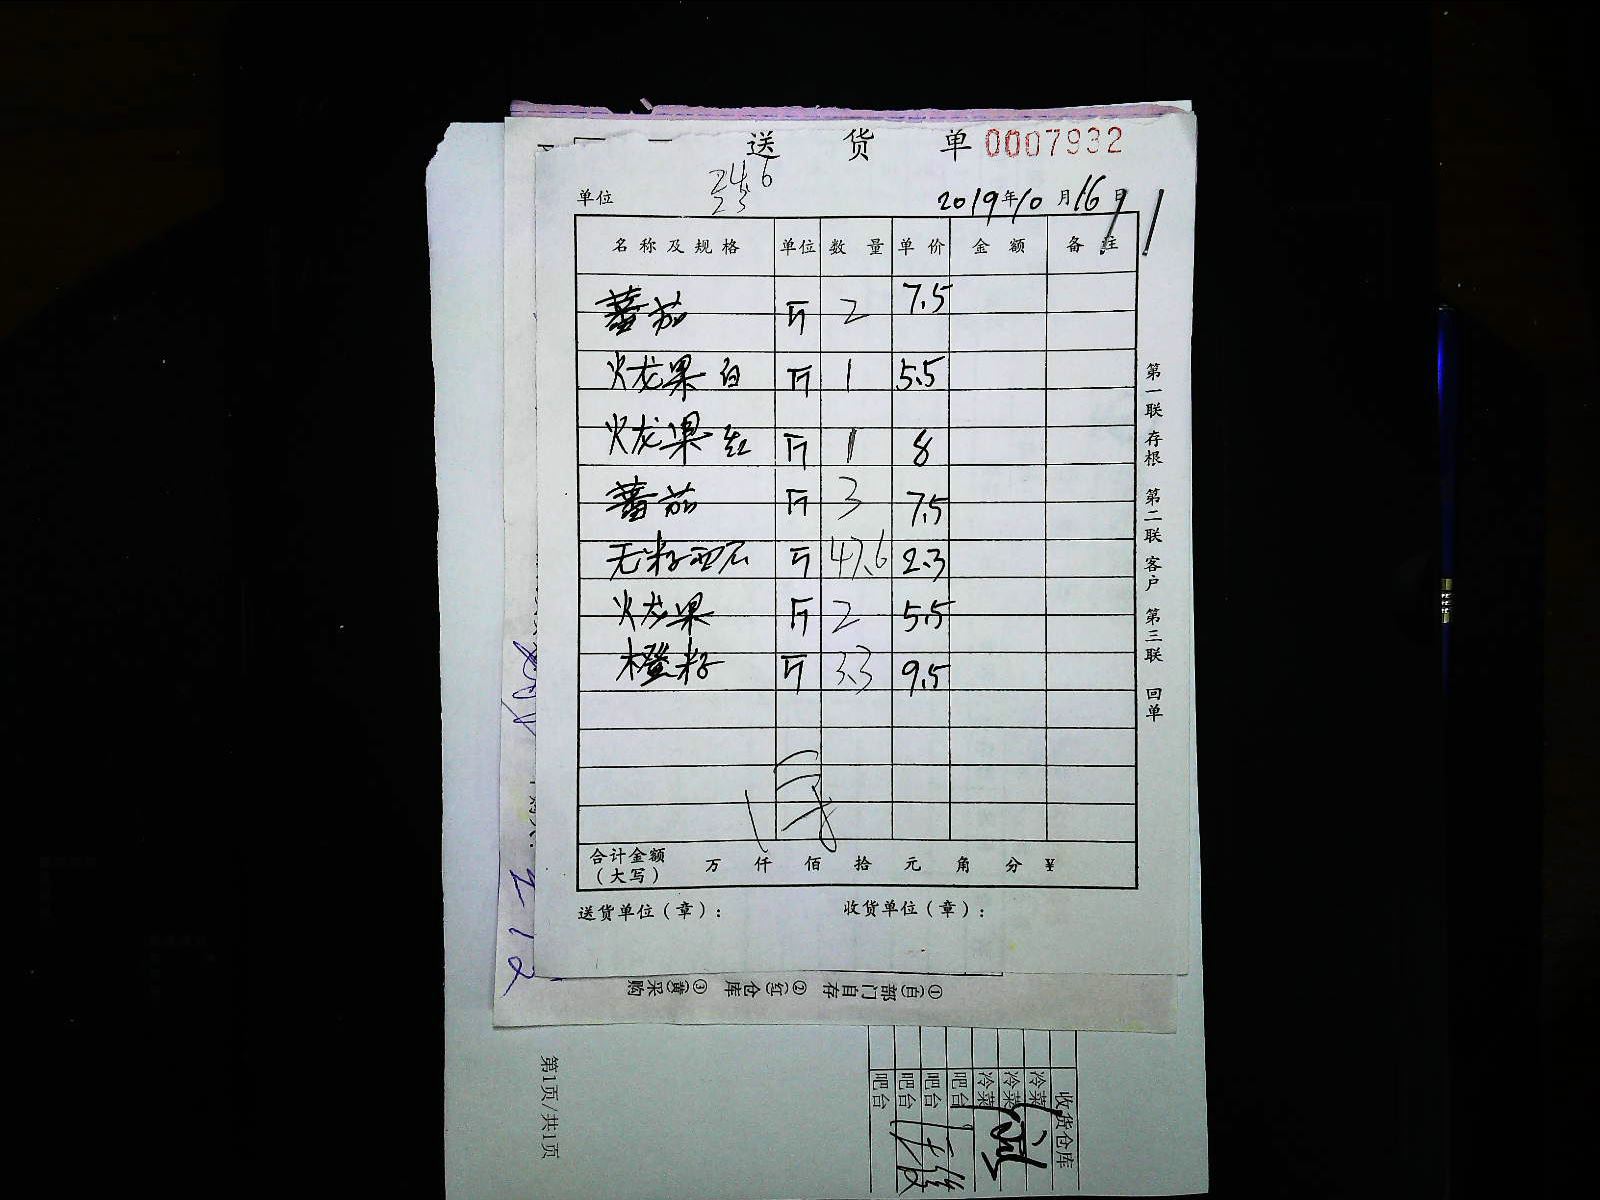 送 货 单 0007932
24.6
23
单位 2019年10月16日
名称及规格 单位 数量 单价 金额 备注
蕃茄 斤 2 7.5
火龙果 白 斤 1 5.5
火龙果 红 斤 1 8
蕃茄 斤 3 7.5
无籽西瓜 斤 47.6 2.3
火龙果 斤 2 5.5
橙籽 斤 3.3 9.5
合计金额（大写） 万 仟 佰 拾 元 角 分 ¥
送货单位（章）： 收货单位（章）：
第一联 存根 第二联 客户 第三联 回单
①(白)部门自存 ②(红)仓库 ③(黄)采购
第1页/共1页
收货仓库
冷菜
冷菜
冷菜
吧台
吧台
吧台
吧台